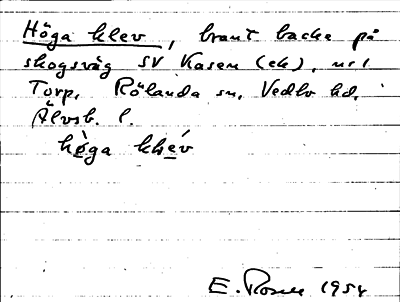 Höga klev, brant backe på
skogsväg SV Kasen (ek), nr 1
Torp, Rölanda sn, Vedbo hd,
Älvsb. l.
hòga klév
E. Rosen 1954